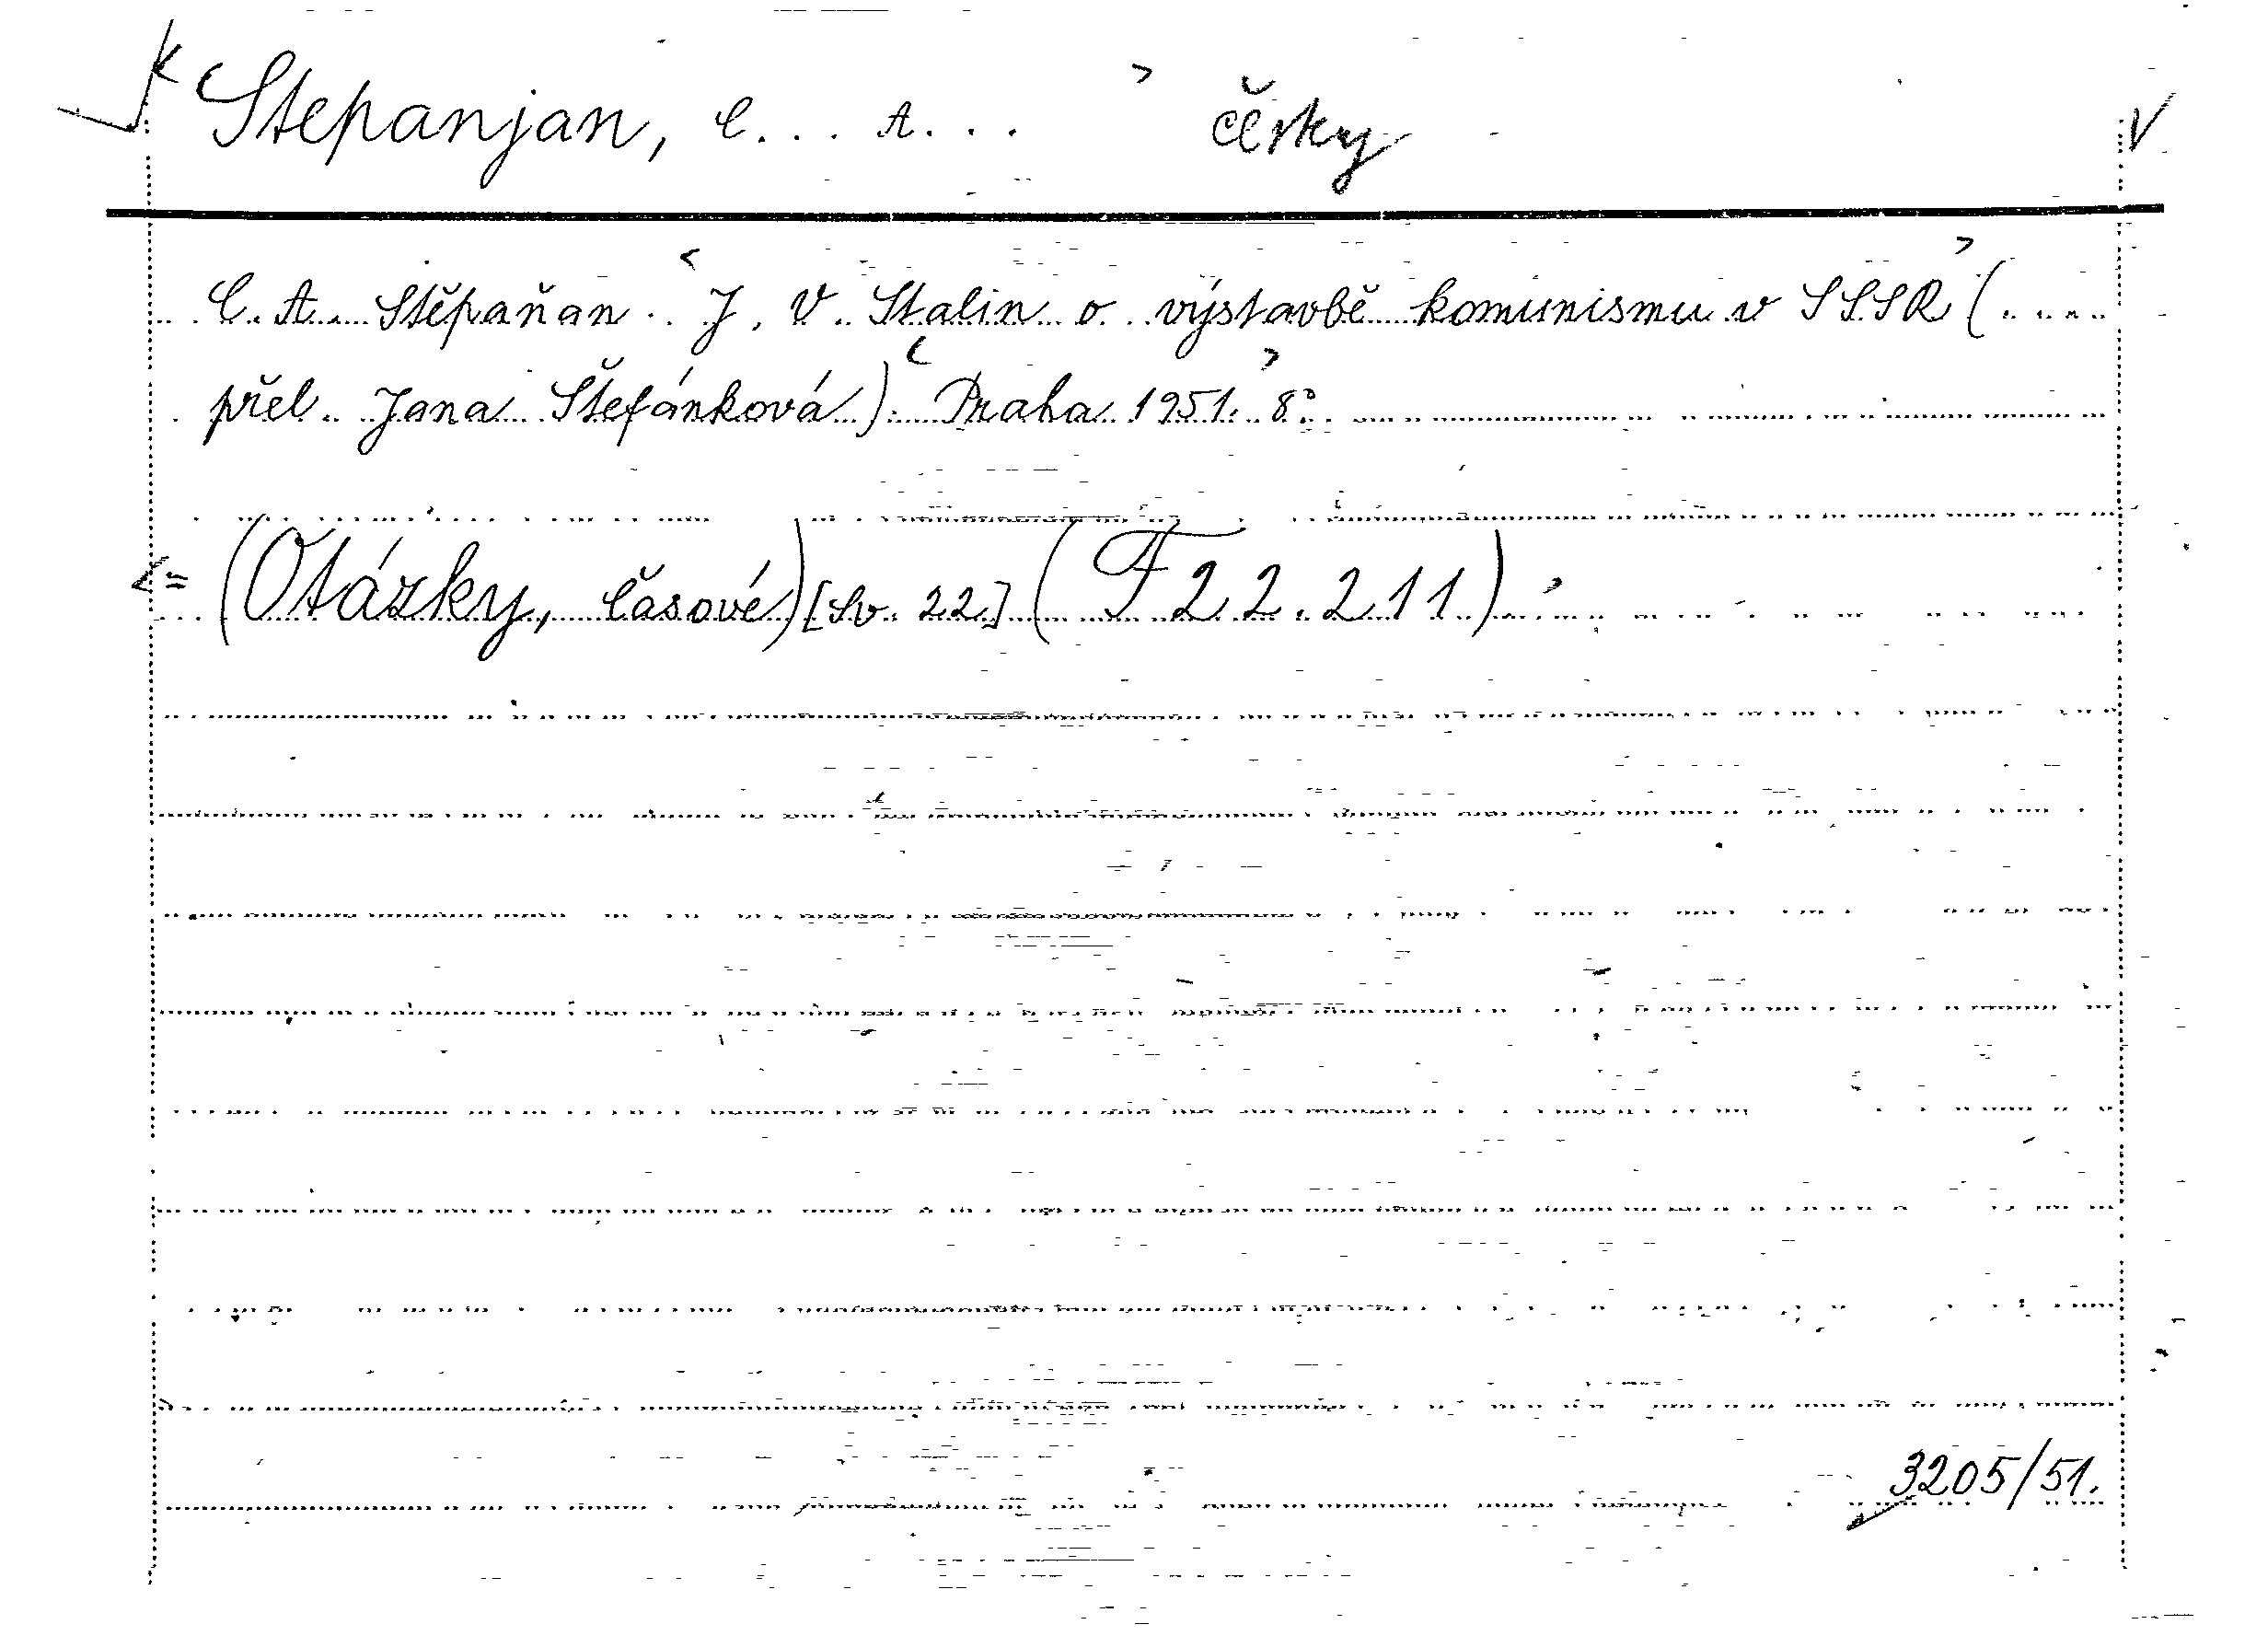 Stepanjan, C... A... česky V
C. A. Štěpaňan. J. V. Stalin o výstavbě komunismu v SSSR (....
přel. Jana Štefánková). Praha 1951. 8°.
= (Otázky, časové) [Sv. 22] (F 22.211).
3205/51.